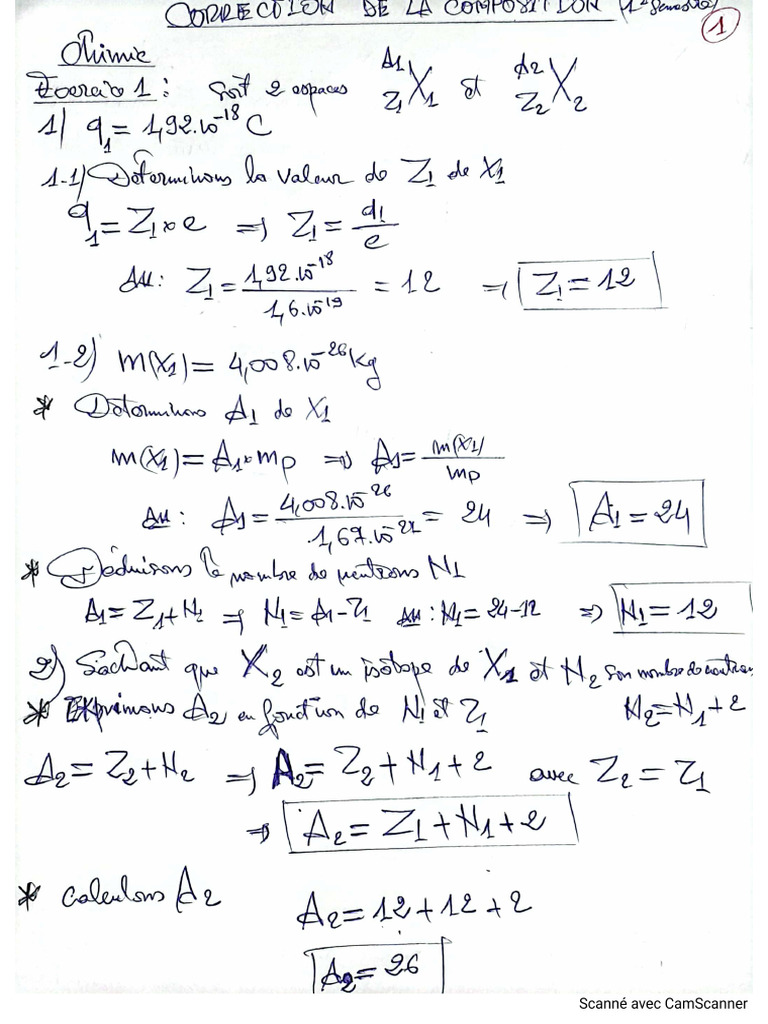 CORRECTION DE LA COMPOSITION (1er Semestre)
1
Chimie
Exercice 1 : Soit 2 espaces A1 Z1 X1 et A2 Z2 X2
1) q1 = 1,92.10^-18 C
1-1) Déterminons la valeur de Z1 de X1
q1 = Z1 x e => Z1 = q1/e
AN : Z1 = 1,92.10^-18 / 1,6.10^-19 = 12 => Z1 = 12
1-2) m(X1) = 4,008.10^-26 kg
* Déterminons A1 de X1
m(X1) = A1 x mp => A1 = m(X1)/mp
AN : A1 = 4,008.10^-26 / 1,67.10^-27 = 24 => A1 = 24
* Déduisons le nombre de neutrons N1
A1 = Z1 + N2 => N1 = A1 - Z1 AN : N1 = 24-12 => N1 = 12
2) Sachant que X2 est un isotope de X1 et N2 son nombre de neutrons
* Exprimons A2 en fonction de N1 et Z1 N2 = N1 + 2
A2 = Z2 + N2 => A2 = Z2 + N1 + 2 avec Z2 = Z1
=> A2 = Z1 + N1 + 2
* Calculons A2 A2 = 12 + 12 + 2
A2 = 26
Scanné avec CamScanner